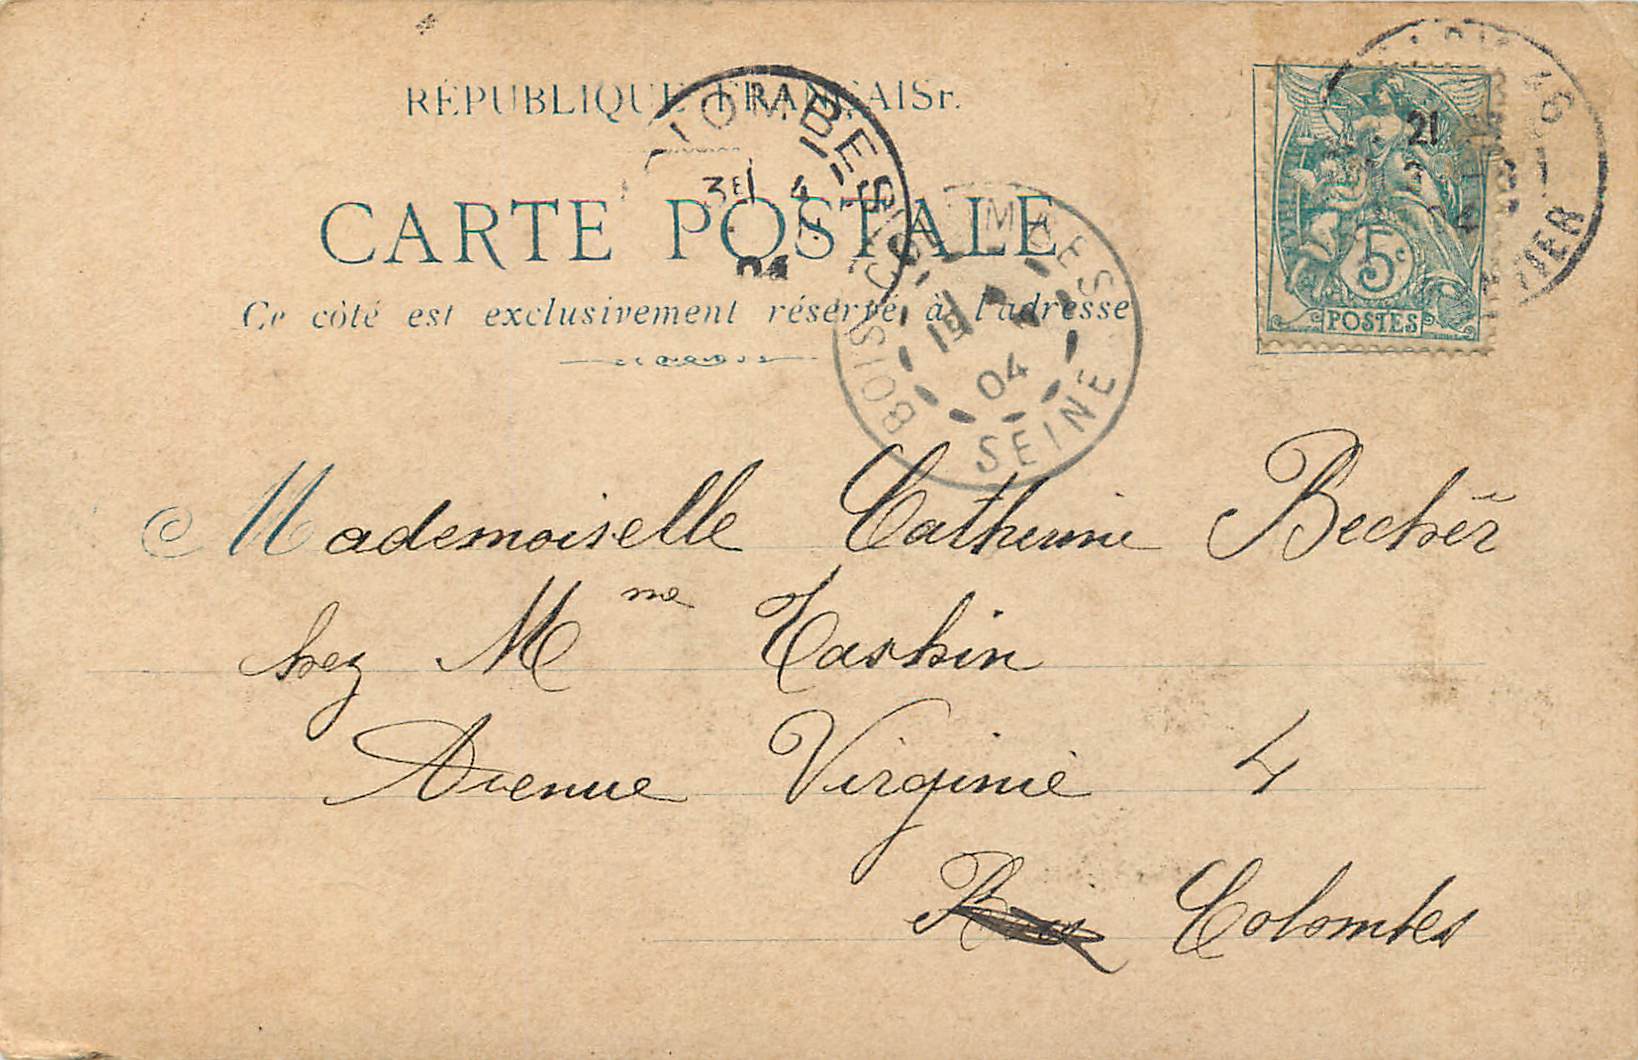 RÉPUBLIQUE FRANÇAISE
CARTE POSTALE
Ce côté est exclusivement réservé à l'adresse
COLOMBES
3E 4
04
BOIS COLOMBES
19E
04
SEINE
21
04
5c
POSTES
Mademoiselle Catherine Becker
chez Mme Taskin
Avenue Virginie 4
Colombes